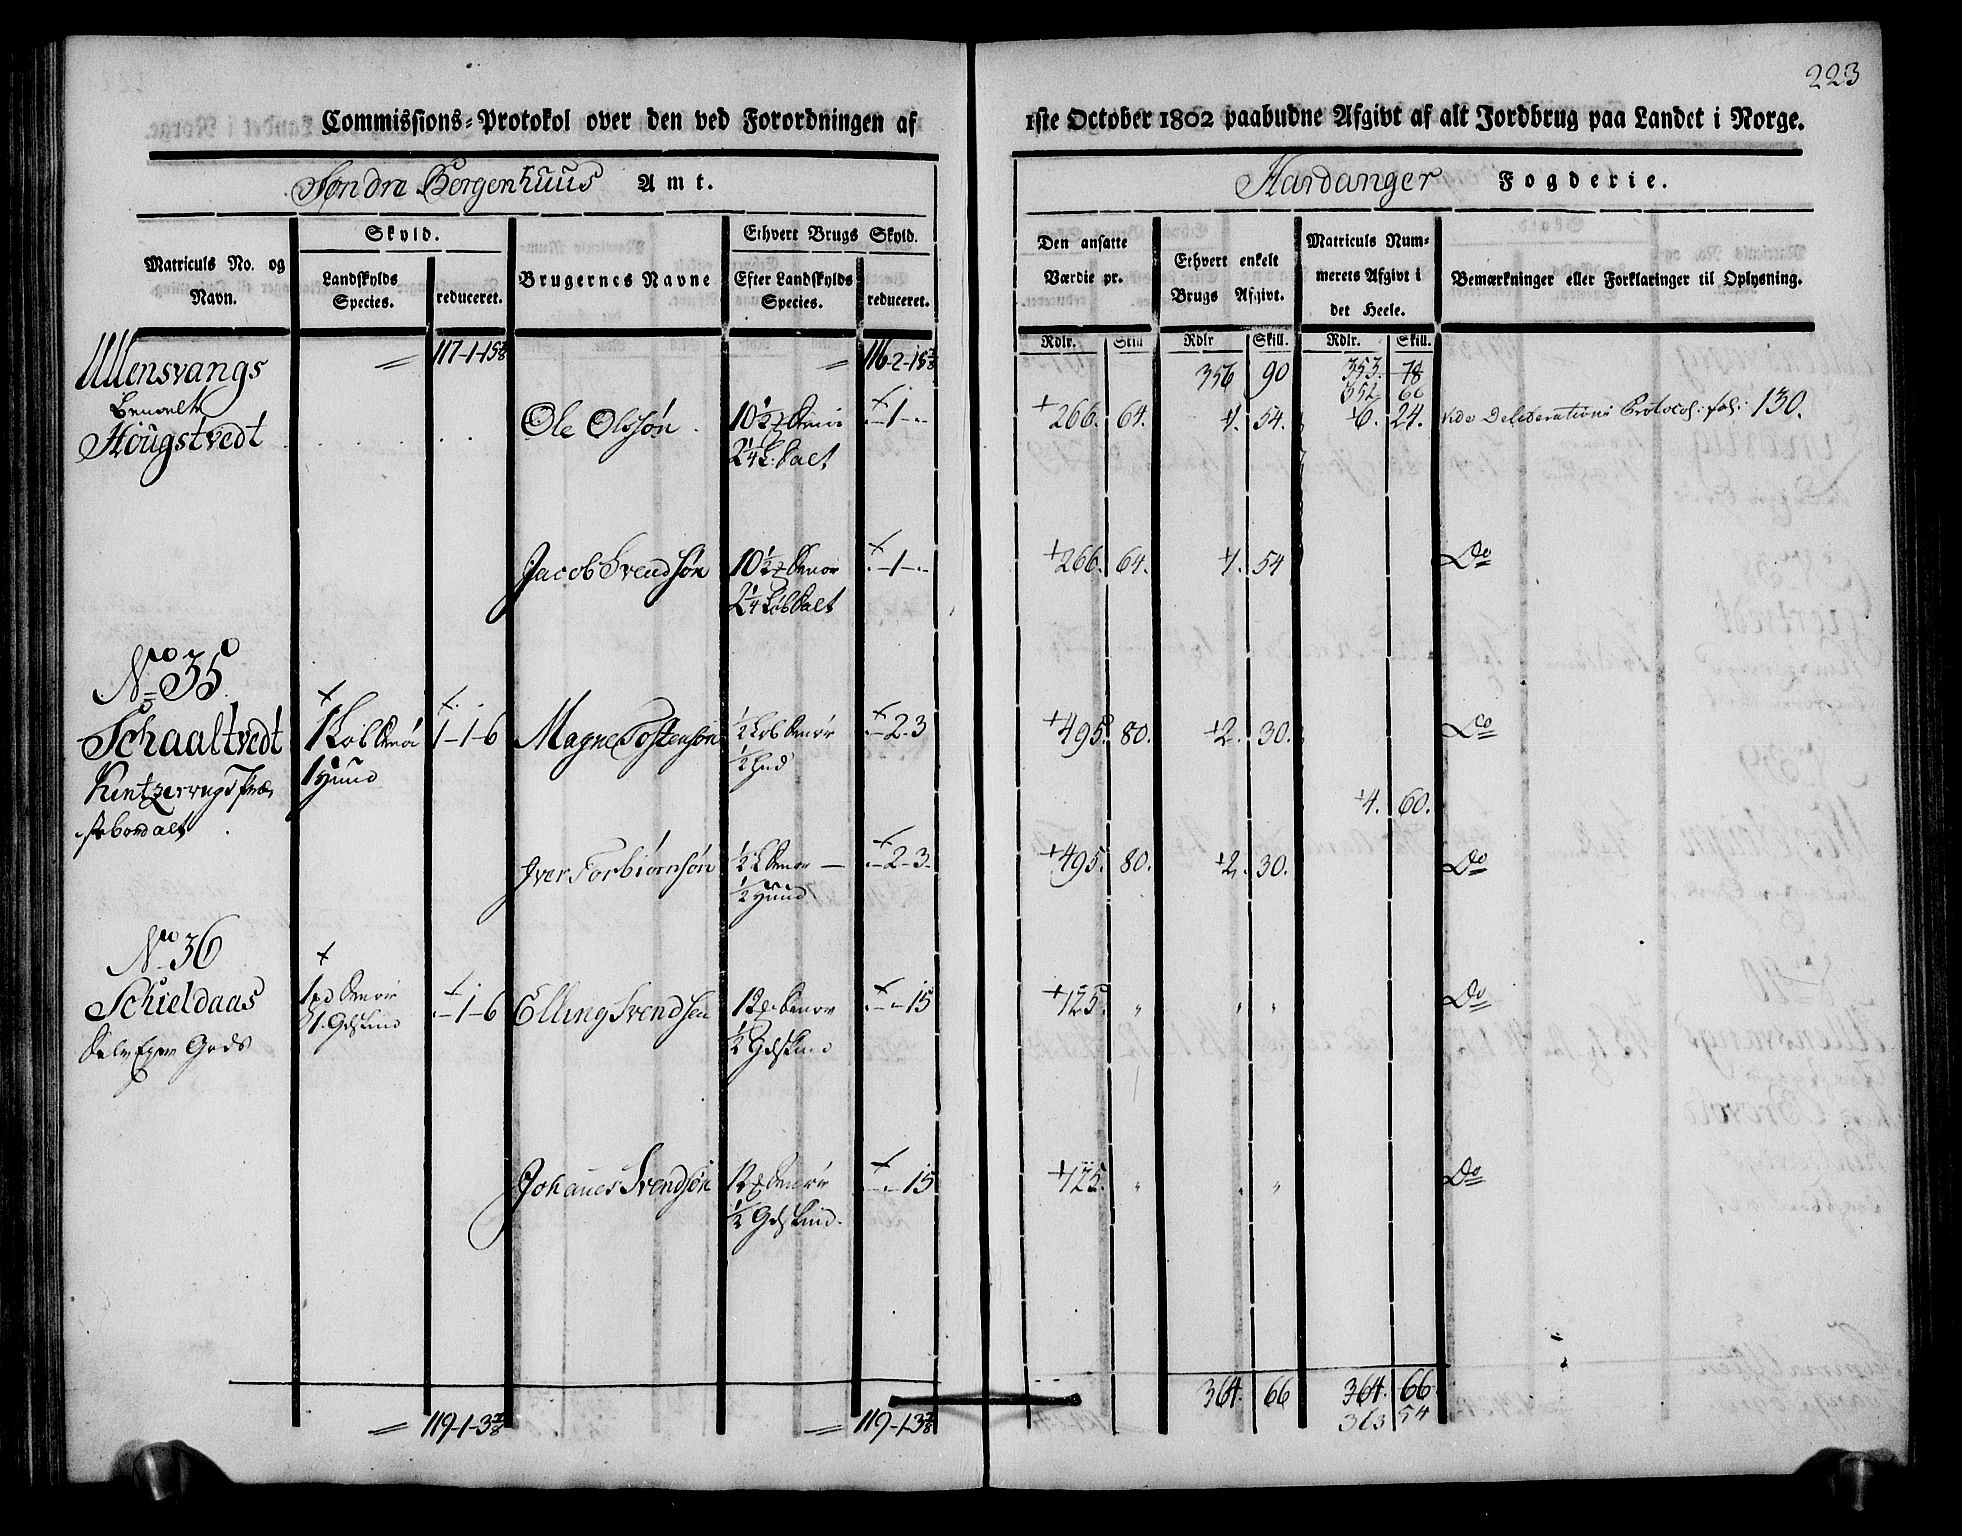 223
Commissions-Protokol over den ved Forordningen af 1ste October 1802 paabudne Afgivt af alt Jordbrug paa Landet i Norge.
Søndre Bergenhuus Amt.
Hardanger Fogderie.
Skyld.
Ethvert Brugs Skyld.
Matriculs No. og Navn.
Landskylds Species.
reduceret.
Brugernes Navne
Efter Landskylds Species.
reduceret.
Den ansatte Værdie pr.
Ethvert enkelt Brugs Afgivt.
Matriculs Nummerets Afgivt i det Heele.
Bemærkninger eller Forklaringer til Oplysning.
Rdlr. Skill Rdlr Skill. Rdlr. Skill.
Ullensvangs = 117-1-15⅞ = 116-2-15⅞ 356 90 353. 78
352 66
Hougstvedt Ole Olssøn 10½ Smør -1- 266. 64. 1. 54. 6. 24. vide Deliberations Protocol: fol: 130.
2¼ L: Salt
Jacob Svendsøn 10½ Smør -1- 266. 64. 1. 54 Do
2¼ Løb Salt
No 35
Schaaltvedt 1 Løb Smør 1-1-6 Magne Tostensøn ½ Løb Smør -2-3 495. 80. 2. 30. Do
1 Huud ½ Hud
4. 60.
Iver Torbiørnsøn ½ L Smør -2-3 495. 80. 2. 30. Do
½ Huud
No 36
Schieldaas 1 pd Smør -1-6 Elling Svendsen 12 Smør -15 125. " " " Do
1 Gdskind ½ Gdskind
Selv Eyer Gods
Johanes Svendsøn 12 Smør -15 125. " " " Do
½ Gdskind.
364. 66 364. 66
= 119-1-3⅞ = 119-1-3⅞ 363 54